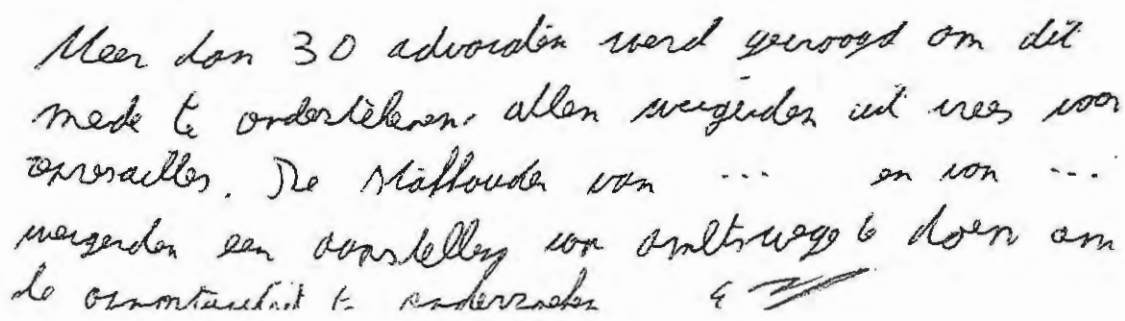 Meer dan 30 advocaten werd gevraagd om dit
mede te ondertekenen. allen weigerden uit vrees voor
represailles. De stafhouder van ... en van ...
weigerden een aanstelling van ambtswege te doen om
de opportuniteit te onderzoeken